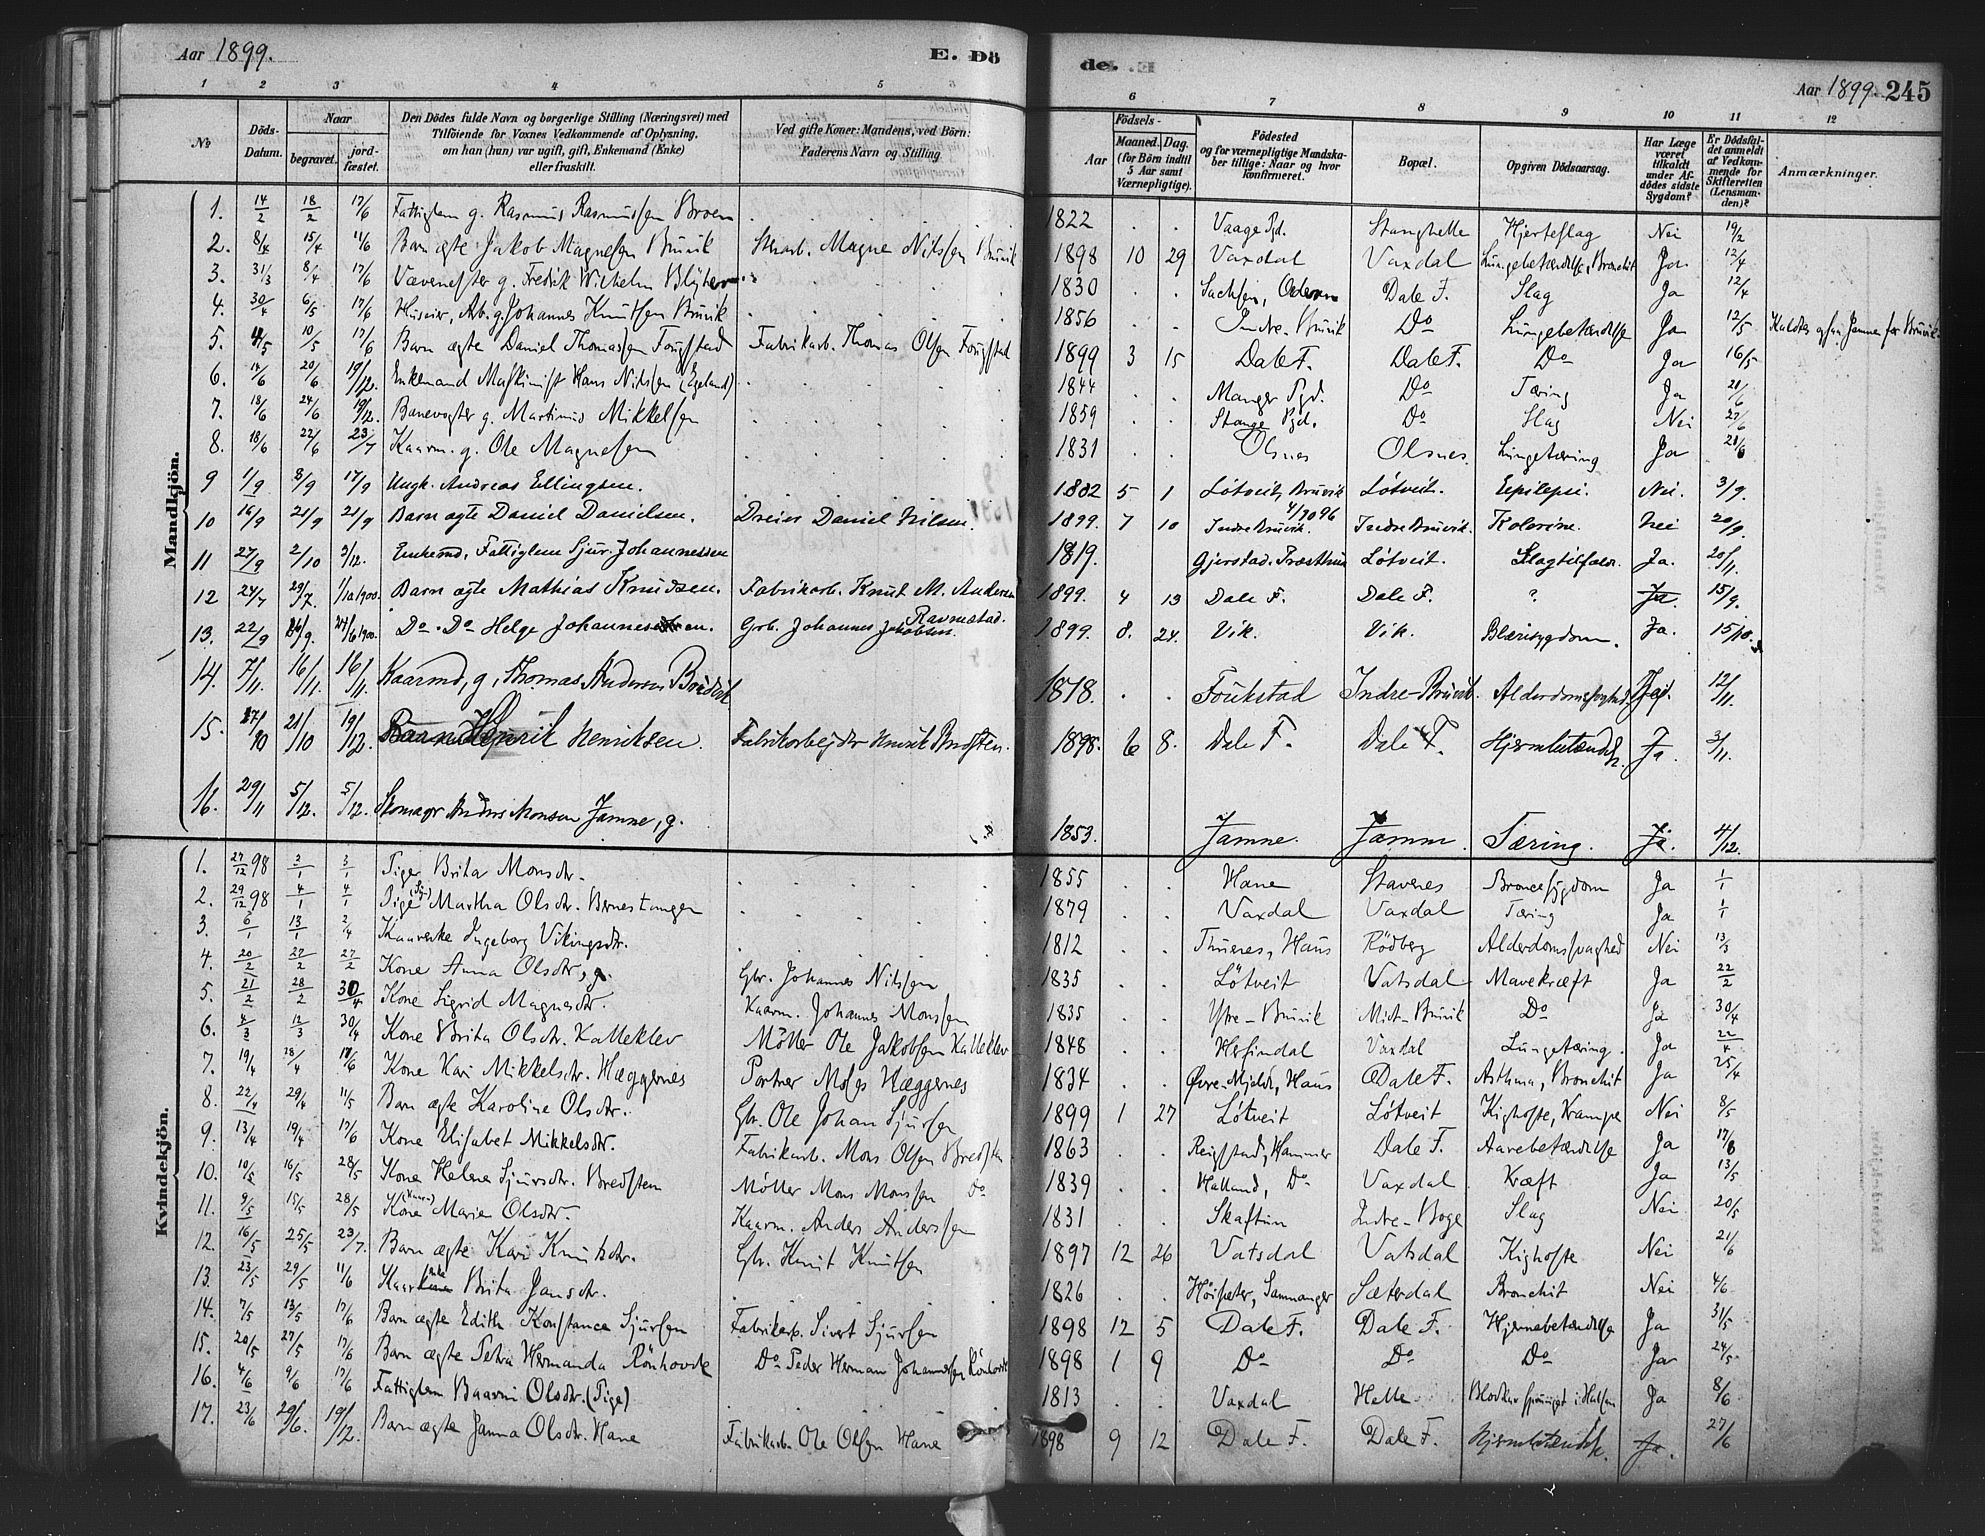 Aar 1899.
E. Dö
de.
Aar 1899. 245
1 2 3 4 5
6 7 8 9 10 11 12
№
Döds-Datum.
Naar
begravet.
jord-fæstet.
Den Dödes fulde Navn og borgerlige Stilling (Næringsvei) med
Tilföiende for Voxnes Vedkommende af Oplysning,
om han (hun) var ugift, gift, Enkemand (Enke)
eller fraskilt.
Ved gifte Koner: Mandens, ved Börn:
Faderens Navn og Stilling
Födsels-
Aar
Maaned. Dag.
(for Börn indtil
5 Aar samt
Værnepligtige).
Födested
og for værnepligtige Mandska-
ber tillige: Naar og hvor
konfirmeret.
Bopæl.
Opgiven Dödsaarsag.
Har Læge
været
tilkaldt
under Af-
dödes sidste
Sygdom?
Er Dödsfal-
det anmeldt
af Vedkom-
mende for
Skifteretten
(Lensman-
den)?
Anmærkninger.
Mandkjön.
1. 14/2 18/2 17/6 Fattiglem g. Rasmus Rasmussen Broen 1822 Vaage Pgd. Stanghelle Hjerteslag Nei 19/2
2. 8/4 15/4 11/6 Barn ægte Jakob Magnesen Bruvik Magne Nilssen Bruvik 1898 10 29 Vaxdal Vaxdal Lungebetændelse, Bronchit Ja 12/4
3. 31/3 8/4 17/6 Vævemester g. Fredrik Wilhelm 1830 Sachsen, Dale F. Slag Ja 12/4
4. 30/4 6/5 17/6 Huseier, Arb. g. Johannes Knutsen Bruvik 1856 Indre-Bruvik Do Lungebetændelse Ja 12/5
5. 4/5 10/5 17/6 Barn ægte Daniel Thomassen Fougstad Fabrikarb. Thomas Olsen Fougstad 1899 3 15 Dale F. Dale F. Do Ja 16/5
6. 14/6 20/6 19/12. Enkemand Maskinist Hans Nilssen (Egeland) 1844 Manger Pgd. Do Tæring Ja 21/6
7. 18/6 24/6 19/12. Banevogter g. Martinus Mikkelsen 1859 Stange Pgd. Do Slag Nei 27/6
8. 18/6 22/6 23/7 Kaarm. g. Ole Magnesen 1831 Olsnes Olsnes. Lungetæring Ja 28/6
9 1/9 8/9 17/9 Ungk. Andreas Ellingsen. 1882 5 1 Lötveit, Bruvik 4/10 96 Lötveit. Epilepsi. Nei. 3/9.
10 16/9 21/9 21/9 Barn ægte Daniel Danielsen. Dreier Daniel Nilsen. 1899. 7 10 Indre Bruvik. Indre Bruvik. Kolerine. Nei 20/9.
11 27/9 2/10 3/12. Enkemd, Fattiglem Sjur Johannessen 1819. Gjerstad, Lötveit. Slagtilfælde. Ja. 20/11.
12 24/7 29/7. 1/10 1900. Barn ægte Mathias Knudsen. Fabrikarb. Knut M. Andersen 1899. 4 13 Dale F. Dale F. ? Ja. 15/9.
Ravnestad.
13. 22/9 26/9. 24/6 1900. Do. Do Helge Johannessen. Grb. Johannes Jakobsen. 1899. 8. 24. Vik. Vik. Blæresygdom. Ja. 15/10.
14. 7/11. 16/11. 16/11. Kaarmd, g, Thomas Andersen Bruvik 1818. Foukstad Indre-Bruvik. Alderdomssvaghed Nei. 12/11.
15. 17/10 21/10 19/12. Barn Henrik Henriksen. Fabrikarbejder Henrik 1898. 6 8. Dale F. Dale F. Hjernebetændelse Ja 3/11.
16. 29/11 5/12. 5/12. Skomager Anders Monsen Jamne, g. 1853. Jamne. Jamne. Tæring. Ja. 4/12.
Kvindekjön.
1. 27/12 98 2/1 3/1 Pige Brita Monsdtr. 1855 Hane Stavenes Ja 1/1
2. 29/12 98 4/1 4/1 Pige Martha Olsdtr. Bernestangen 1879 Vaxdal Vaxdal Tæring Ja 1/1
3. 6/1 13/1 2/4 Kaarenke Ingeborg Vikingsdtr. 1812 Thunes, Haus Rödberg Alderdomssvaghed Nei 13/3
4. 20/2 27/2 27/2 Kone Anna Olsdtr, g. Gbr. Johannes Nilssen 1835 Lötveit Vatsdal Mavekræft Ja 22/2
5. 21/2 28/2 30/4 Kone Sigrid Magnesdtr. Kaarm. Johannes Monssen 1835 Ytre-Bruvik Midt-Bruvik Do Ja 30/4
6. 4/3 12/3 30/4 Kone Brita Olsdtr. Kalleklev Möller Ole Jakobsen Kalleklev 1848 Hesjedal Vaxdal Lungetæring. Ja 22/4
7. 19/4 28/4 18/6 Kone Kari Mikkelsdtr. Hæggernes Portner Mons Hæggernes 1834 Øvre-Mjelde, Haus Dale F. Asthma, Bronchit Ja 25/4
8. 22/4 29/4 11/5 Barn ægte Karoline Olsdtr. Gbr. Ole Johan Sjursen 1899 1 27 Lötveit Lötveit Kighoste, Krampe Nei 8/5
9. 13/4 19/4 17/6 Kone Elisabet Mikkelsdtr. Fabrikarb. Mons Olsen Bredsten 1863 Reigstad, Hammer Dale F. Aarebetændelse Ja 17/8
10. 10/5 16/5 28/5 Kone Helene Sjursdtr. Bredsten Möller Mons Monssen Do 1839 Halland, Do Vaxdal Kræft Ja 13/5
11. 9/5 15/5 28/5 Kone (Kaar) Marie Olsdtr. Kaarm. Anders Anderssen 1831 Skaftun Indre-Boge Slag Nei 20/5
12. 16/5 25/5 23/7. Barn ægte Kari Knutsdtr. Gbr. Knut Knutsen 1897 12 26 Vatsdal Vatsdal Kighoste Nei 21/6
13. 23/5 29/5 11/6 Kaarenke Brita Jansdtr. 1826 Höisæter, Samnanger Sæterdal Bronchit Nei 4/6
14. 7/5 13/5 17/6 Barn ægte Edith Konstance Sjursen Fabrikarb. Sivert Sjursen 1898 12 5 Dale F. Dale F. Hjernebetændelse Ja 31/5
15. 20/5 27/5 17/6 Barn ægte Petra Hermanda Rönhovde Do Peder Herman Johannessen Rönhovde 1898 1 9 Do Do Do Ja 24/5
16. 4/6 9/6 17/6 Fattiglem Baarni Olsdtr. (Pige) 1813 Vaxdal Helle Blodkar sprunget i Halsen Ja 8/6
17. 23/6 29/6. 19/12. Barn ægte Janna Olsdtr. Hane Fabrikarb. Ole Olsen Hane 1898 9 12 Dale F. Dale F. Hjernebetændelse. Ja. 27/6